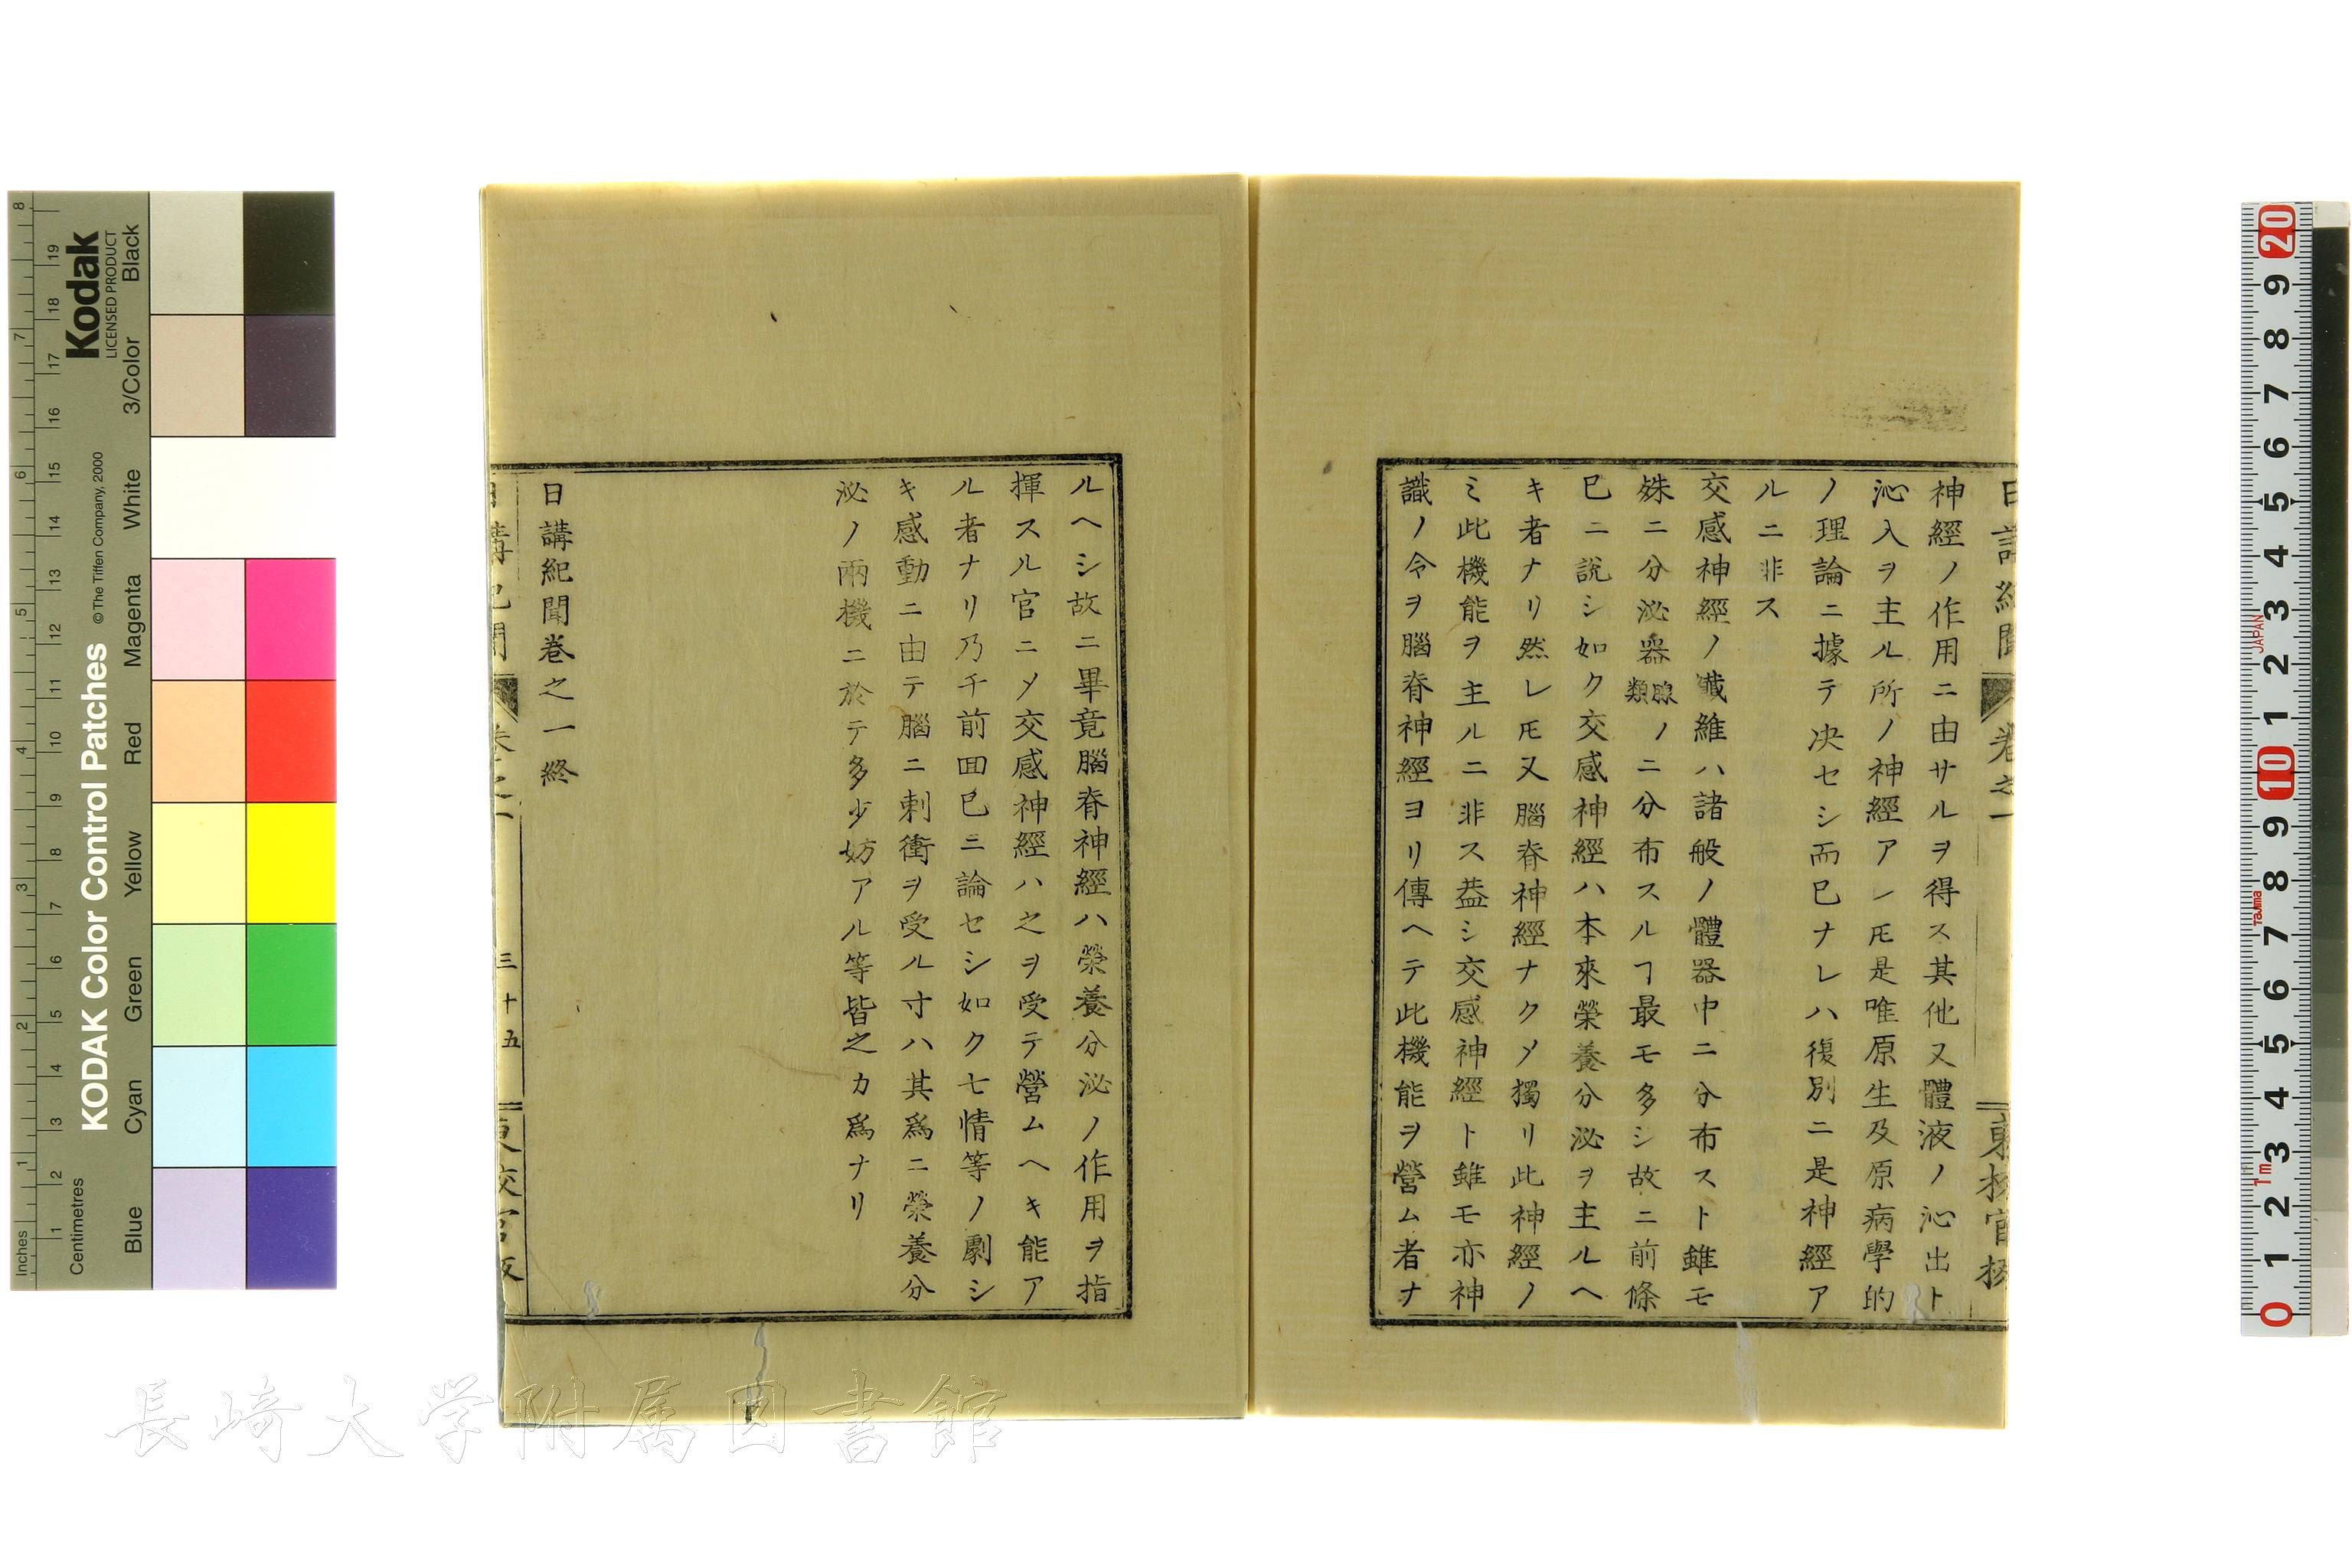 神經ノ作用ニ由サルヲ得ス其他又體液ノ沁出ト
沁入ヲ主ル所ノ神經アレ𪜈是唯原生及原病學的
ノ理論ニ據テ决セシ而已ナレハ復別ニ是神經ア
ルニ非ス
交感神經ノ纎維ハ諸般ノ體器中ニ分布スト雖モ
殊ニ分泌器腺類ノニ分布スルヿ最モ多シ故ニ前條
已ニ說シ如ク交感神經ハ本來榮養分泌ヲ主ルヘ
キ者ナリ然レ𪜈又腦脊神經ナクメ獨リ此神經ノ
ミ此機能ヲ主ルニ非ス葢シ交感神經ト雖モ亦神
識ノ令ヲ腦脊神經ヨリ傳ヘテ此機能ヲ營ム者ナ
ルヘシ故ニ畢竟腦脊神經ハ榮養分泌ノ作用ヲ指
揮スル官ニメ交感神經ハ之ヲ受テ營ムヘキ能ア
ル者ナリ乃チ前回已ニ論セシ如ク七情等ノ劇シ
キ感動ニ由テ腦ニ刺衝ヲ受ル寸ハ其爲ニ榮養分
泌ノ兩機ニ於テ多少妨アル等皆之カ爲ナリ
日講紀聞卷之一終
三十五
長崎大学附属図書館
KODAK Color Control Patches
© The Tiffen Company, 2000
Kodak
LICENSED PRODUCT
Inches
1 2 3 4 5 6 7 8
Centimetres
1 2 3 4 5 6 7 8 9 10 11 12 13 14 15 16 17 18 19
Blue Cyan Green Yellow Red Magenta White 3/Color Black
20
9
8
7
6
5
4
3
2
1
10
9
8
7
6
5
4
3
2
1
0
JAPAN
Tajima
1m